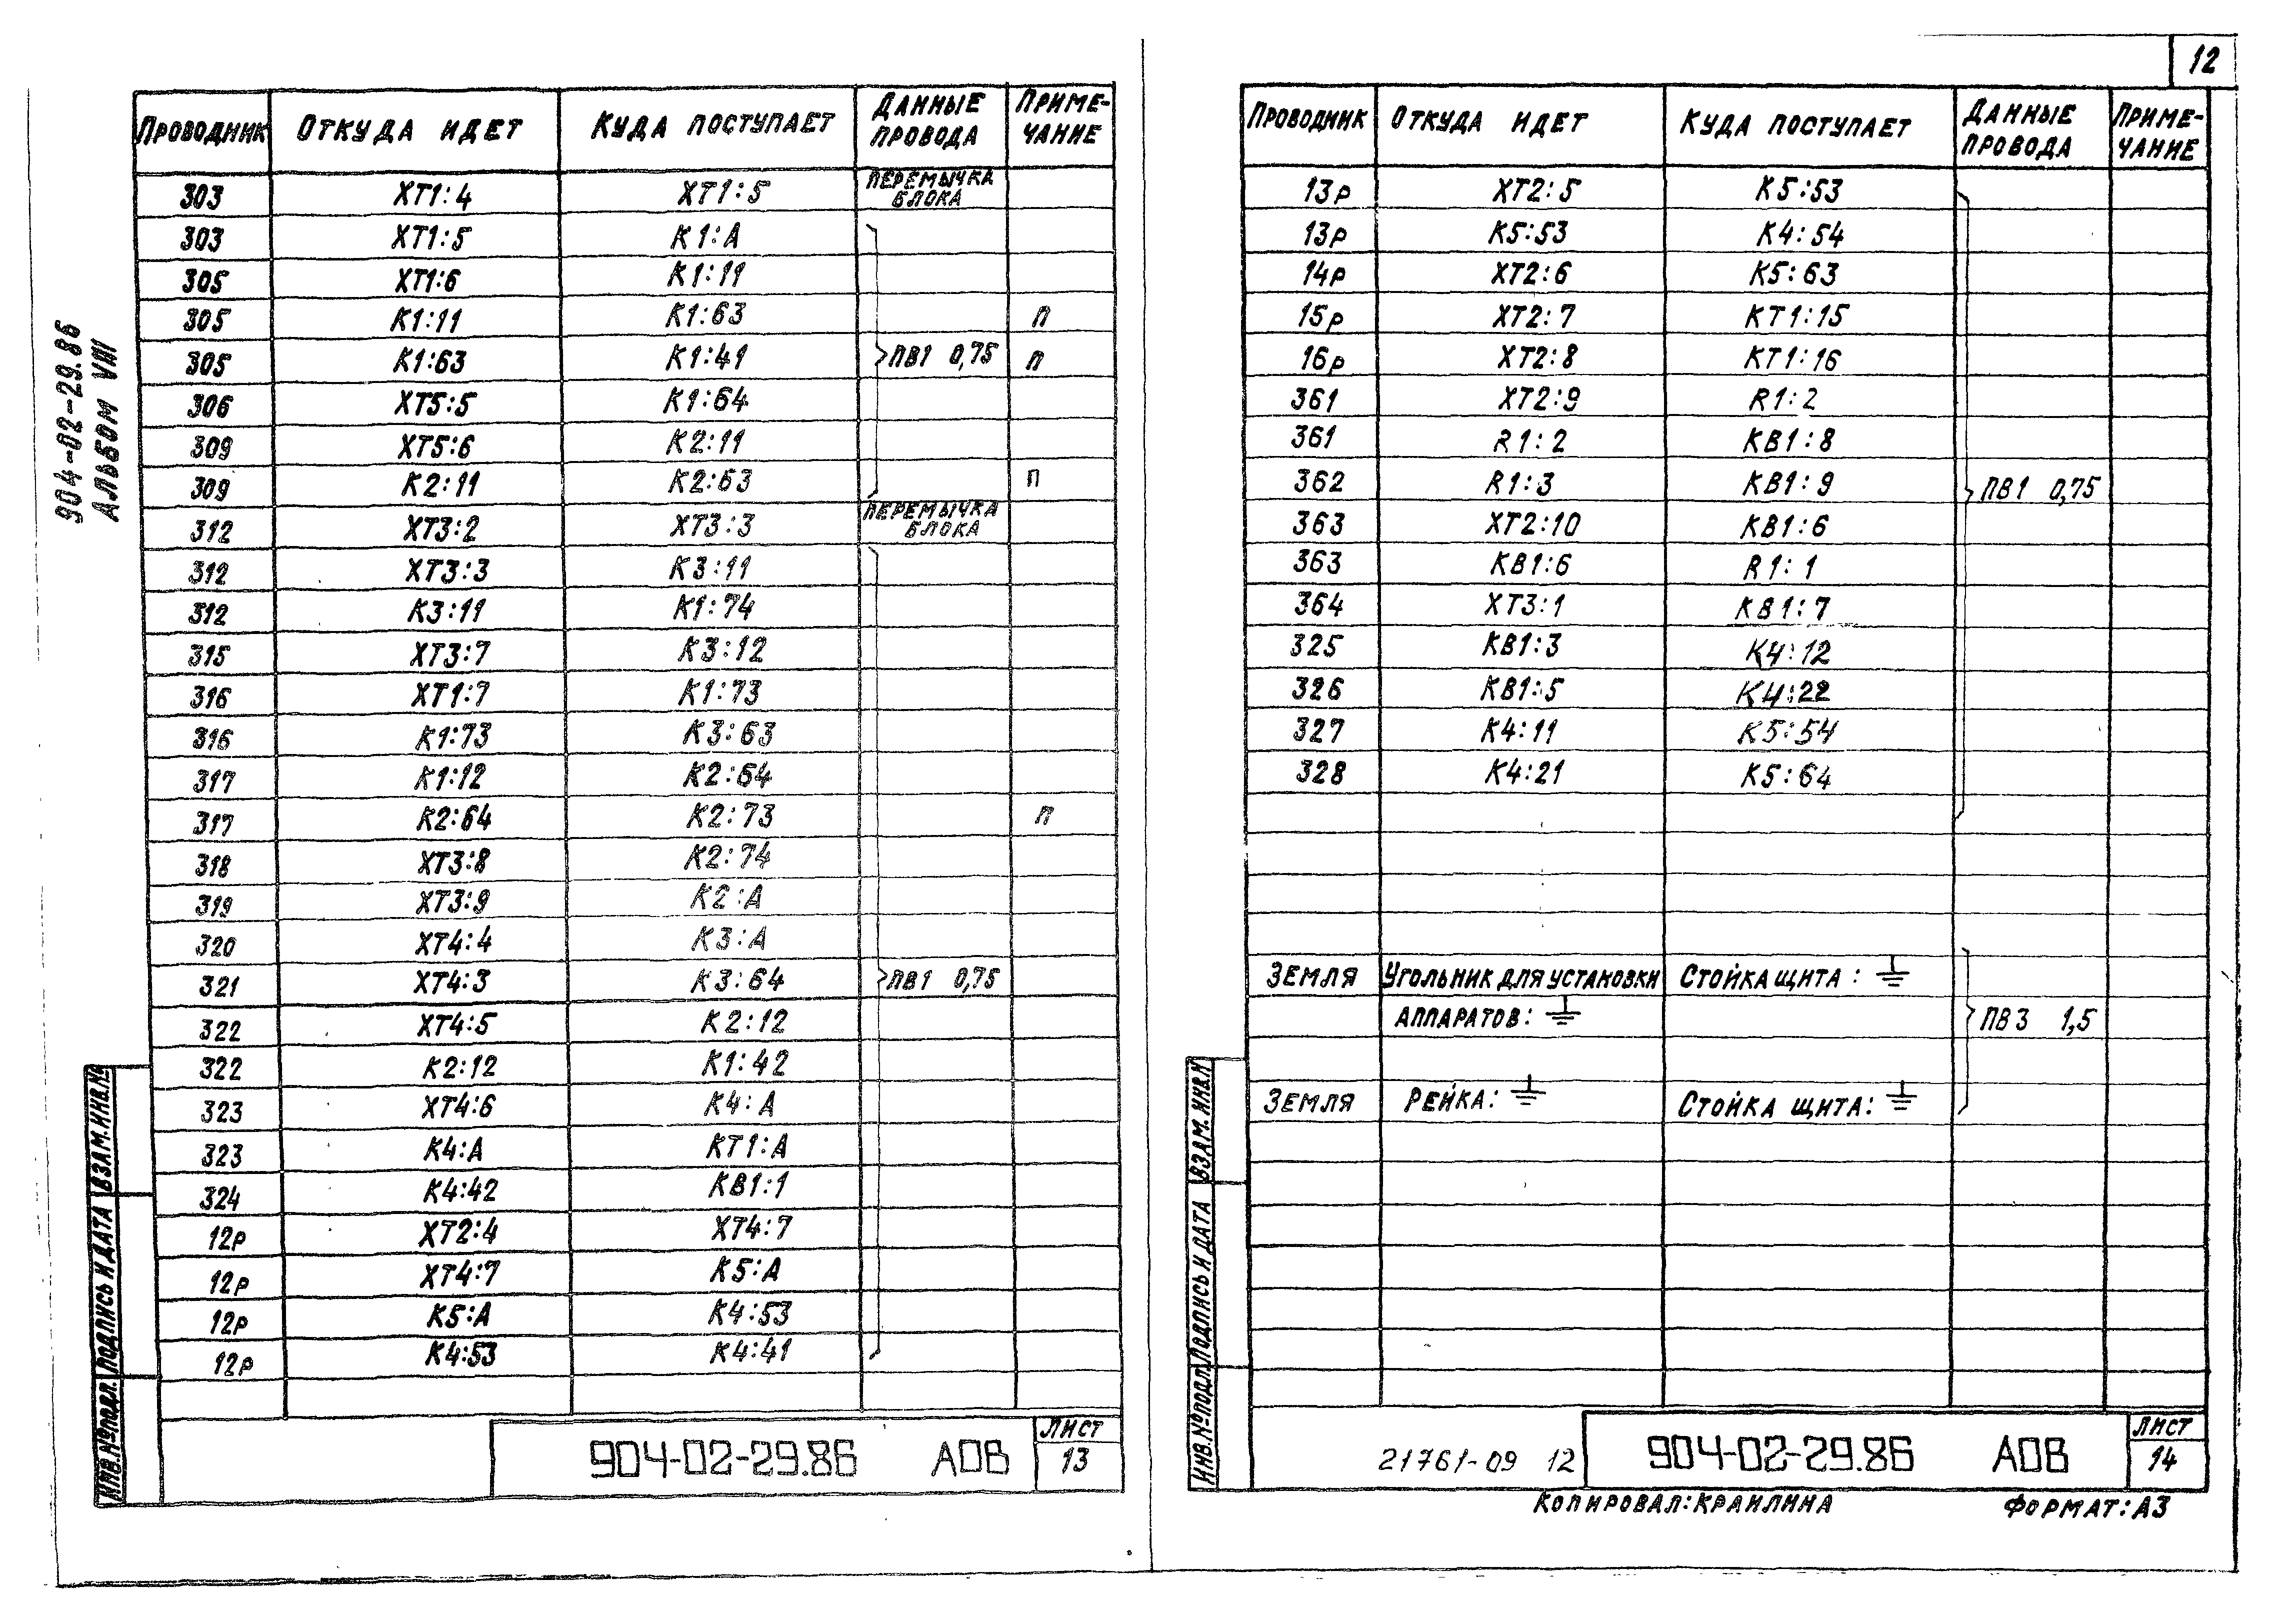 12
904-02-29.86
АЛЬБОМ VIII
ПРОВОДНИК ОТКУДА ИДЕТ КУДА ПОСТУПАЕТ ДАННЫЕ ПРОВОДА ПРИМЕ-ЧАНИЕ
303 ХТ1:4 ХТ1:5 ПЕРЕМЫЧКА БЛОКА
303 ХТ1:5 К1:А
305 ХТ1:6 К1:11
305 К1:11 К1:63 П
305 К1:63 К1:41 ПВ1 0,75 П
306 ХТ5:5 К1:64
309 ХТ5:6 К2:11
309 К2:11 К2:63 П
312 ХТ3:2 ХТ3:3 ПЕРЕМЫЧКА БЛОКА
312 ХТ3:3 К3:11
312 К3:11 К1:74
315 ХТ3:7 К3:12
316 ХТ1:7 К1:73
316 К1:73 К3:63
317 К1:12 К2:64
317 К2:64 К2:73 П
318 ХТ3:8 К2:74
319 ХТ3:9 К2:А
320 ХТ4:4 К3:А
321 ХТ4:3 К3:64 ПВ1 0,75
322 ХТ4:5 К2:12
322 К2:12 К1:42
323 ХТ4:6 К4:А
323 К4:А КТ1:А
324 К4:42 КВ1:1
12р ХТ2:4 ХТ4:7
12р ХТ4:7 К5:А
12р К5:А К4:53
12р К4:53 К4:41
ИНВ.№ПОДЛ. ПОДПИСЬ И ДАТА ВЗАМ.ИНВ.№
904-02-29.86 АОВ
ЛИСТ
13
ПРОВОДНИК ОТКУДА ИДЕТ КУДА ПОСТУПАЕТ ДАННЫЕ ПРОВОДА ПРИМЕ-ЧАНИЕ
13р ХТ2:5 К5:53
13р К5:53 К4:54
14р ХТ2:6 К5:63
15р ХТ2:7 КТ1:15
16р ХТ2:8 КТ1:16
361 ХТ2:9 R1:2
361 R1:2 КВ1:8
362 R1:3 КВ1:9 ПВ1 0,75
363 ХТ2:10 КВ1:6
363 КВ1:6 R1:1
364 ХТ3:1 КВ1:7
325 КВ1:3 К4:12
326 КВ1:5 К4:22
327 К4:11 К5:54
328 К4:21 К5:64
ЗЕМЛЯ УГОЛЬНИК ДЛЯ УСТАНОВКИ СТОЙКА ЩИТА: ⏚
АППАРАТОВ: ⏚ ПВ3 1,5
ЗЕМЛЯ РЕЙКА: ⏚ СТОЙКА ЩИТА: ⏚
ИНВ.№ПОДЛ. ПОДПИСЬ И ДАТА ВЗАМ.ИНВ.№
21761-09 12
904-02-29.86 АОВ
ЛИСТ
14
КОПИРОВАЛ: КРАИЛИНА ФОРМАТ: А3